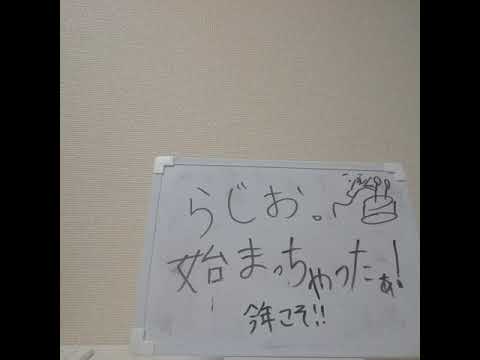 らじお。
始まっちゃったぁ!
今年こそ!!